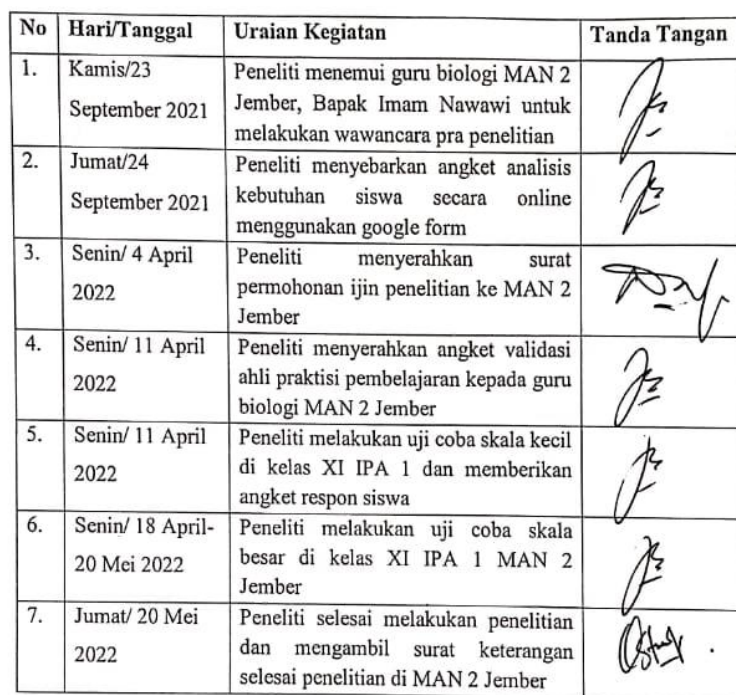 No Hari/Tanggal Uraian Kegiatan Tanda Tangan
1. Kamis/23 Peneliti menemui guru biologi MAN 2
September 2021 Jember, Bapak Imam Nawawi untuk
melakukan wawancara pra penelitian
2. Jumat/24 Peneliti menyebarkan angket analisis
September 2021 kebutuhan siswa secara online
menggunakan google form
3. Senin/ 4 April Peneliti menyerahkan surat
2022 permohonan ijin penelitian ke MAN 2
Jember
4. Senin/ 11 April Peneliti menyerahkan angket validasi
2022 ahli praktisi pembelajaran kepada guru
biologi MAN 2 Jember
5. Senin/ 11 April Peneliti melakukan uji coba skala kecil
2022 di kelas XI IPA 1 dan memberikan
angket respon siswa
6. Senin/ 18 April- Peneliti melakukan uji coba skala
20 Mei 2022 besar di kelas XI IPA 1 MAN 2
Jember
7. Jumat/ 20 Mei Peneliti selesai melakukan penelitian
2022 dan mengambil surat keterangan
selesai penelitian di MAN 2 Jember